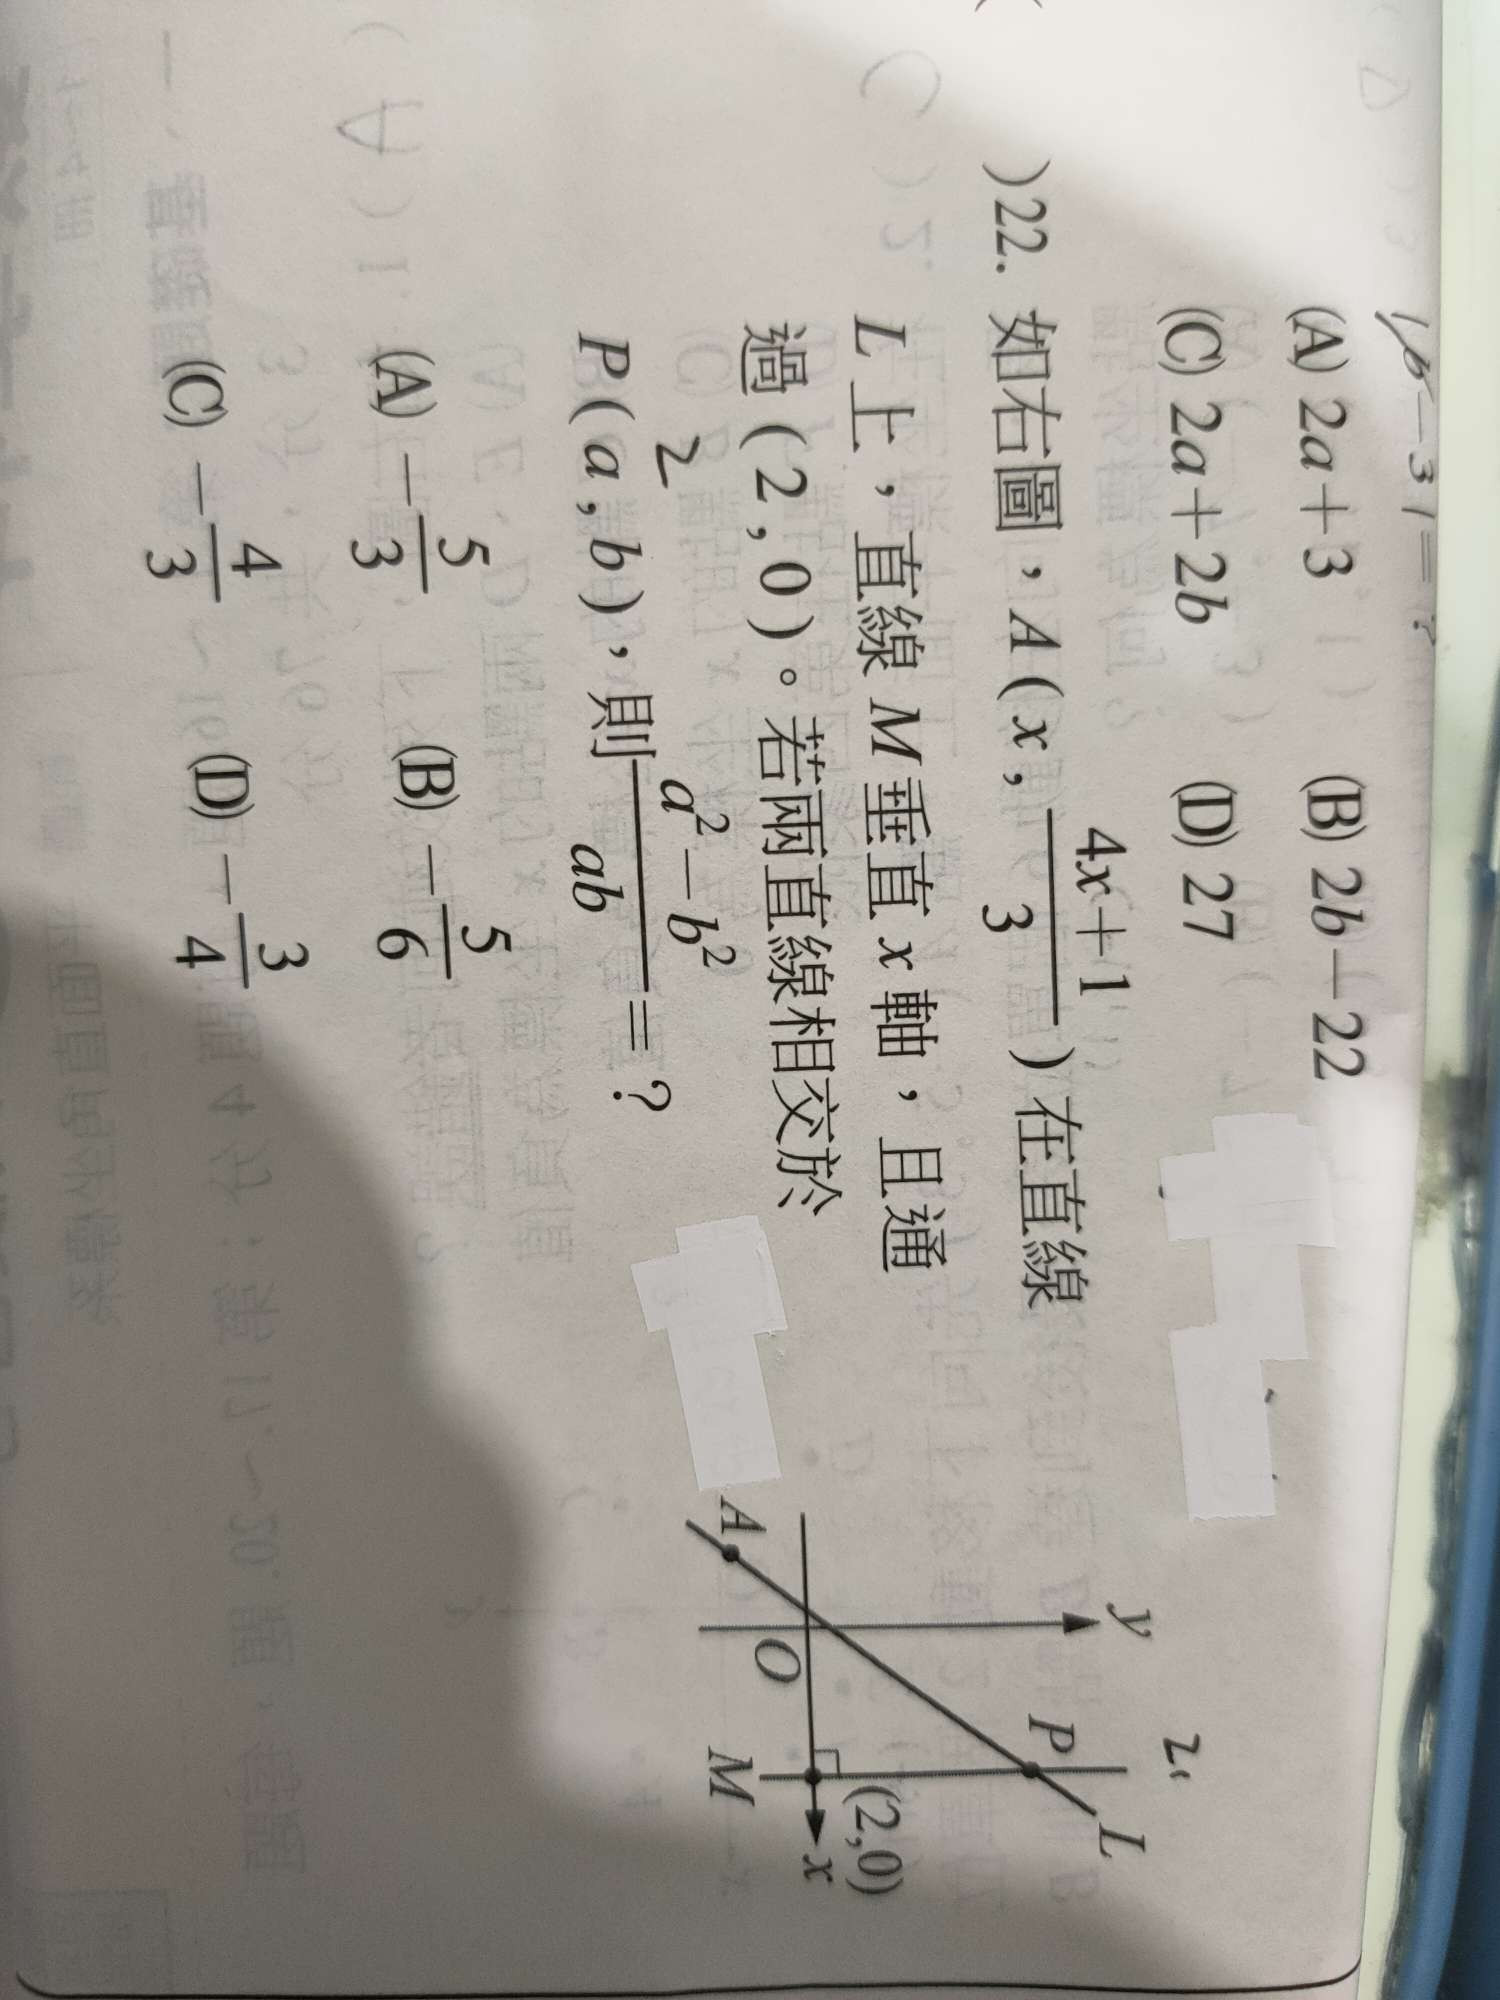 (A) 2a+3 (B) 2b-22
(C) 2a+2b (D) 27
)22. 如右圖，A(x, \frac{4x+1}{3})在直線
L上，直線M垂直x軸，且通
過(2,0)。若兩直線相交於
2
P(a,b)，則\frac{a²-b²}{ab}=？
(A) -\frac{5}{3} (B) -\frac{5}{6}
(C) -\frac{4}{3} (D) -\frac{3}{4}
y
L
P
A
O
(2,0)
x
M